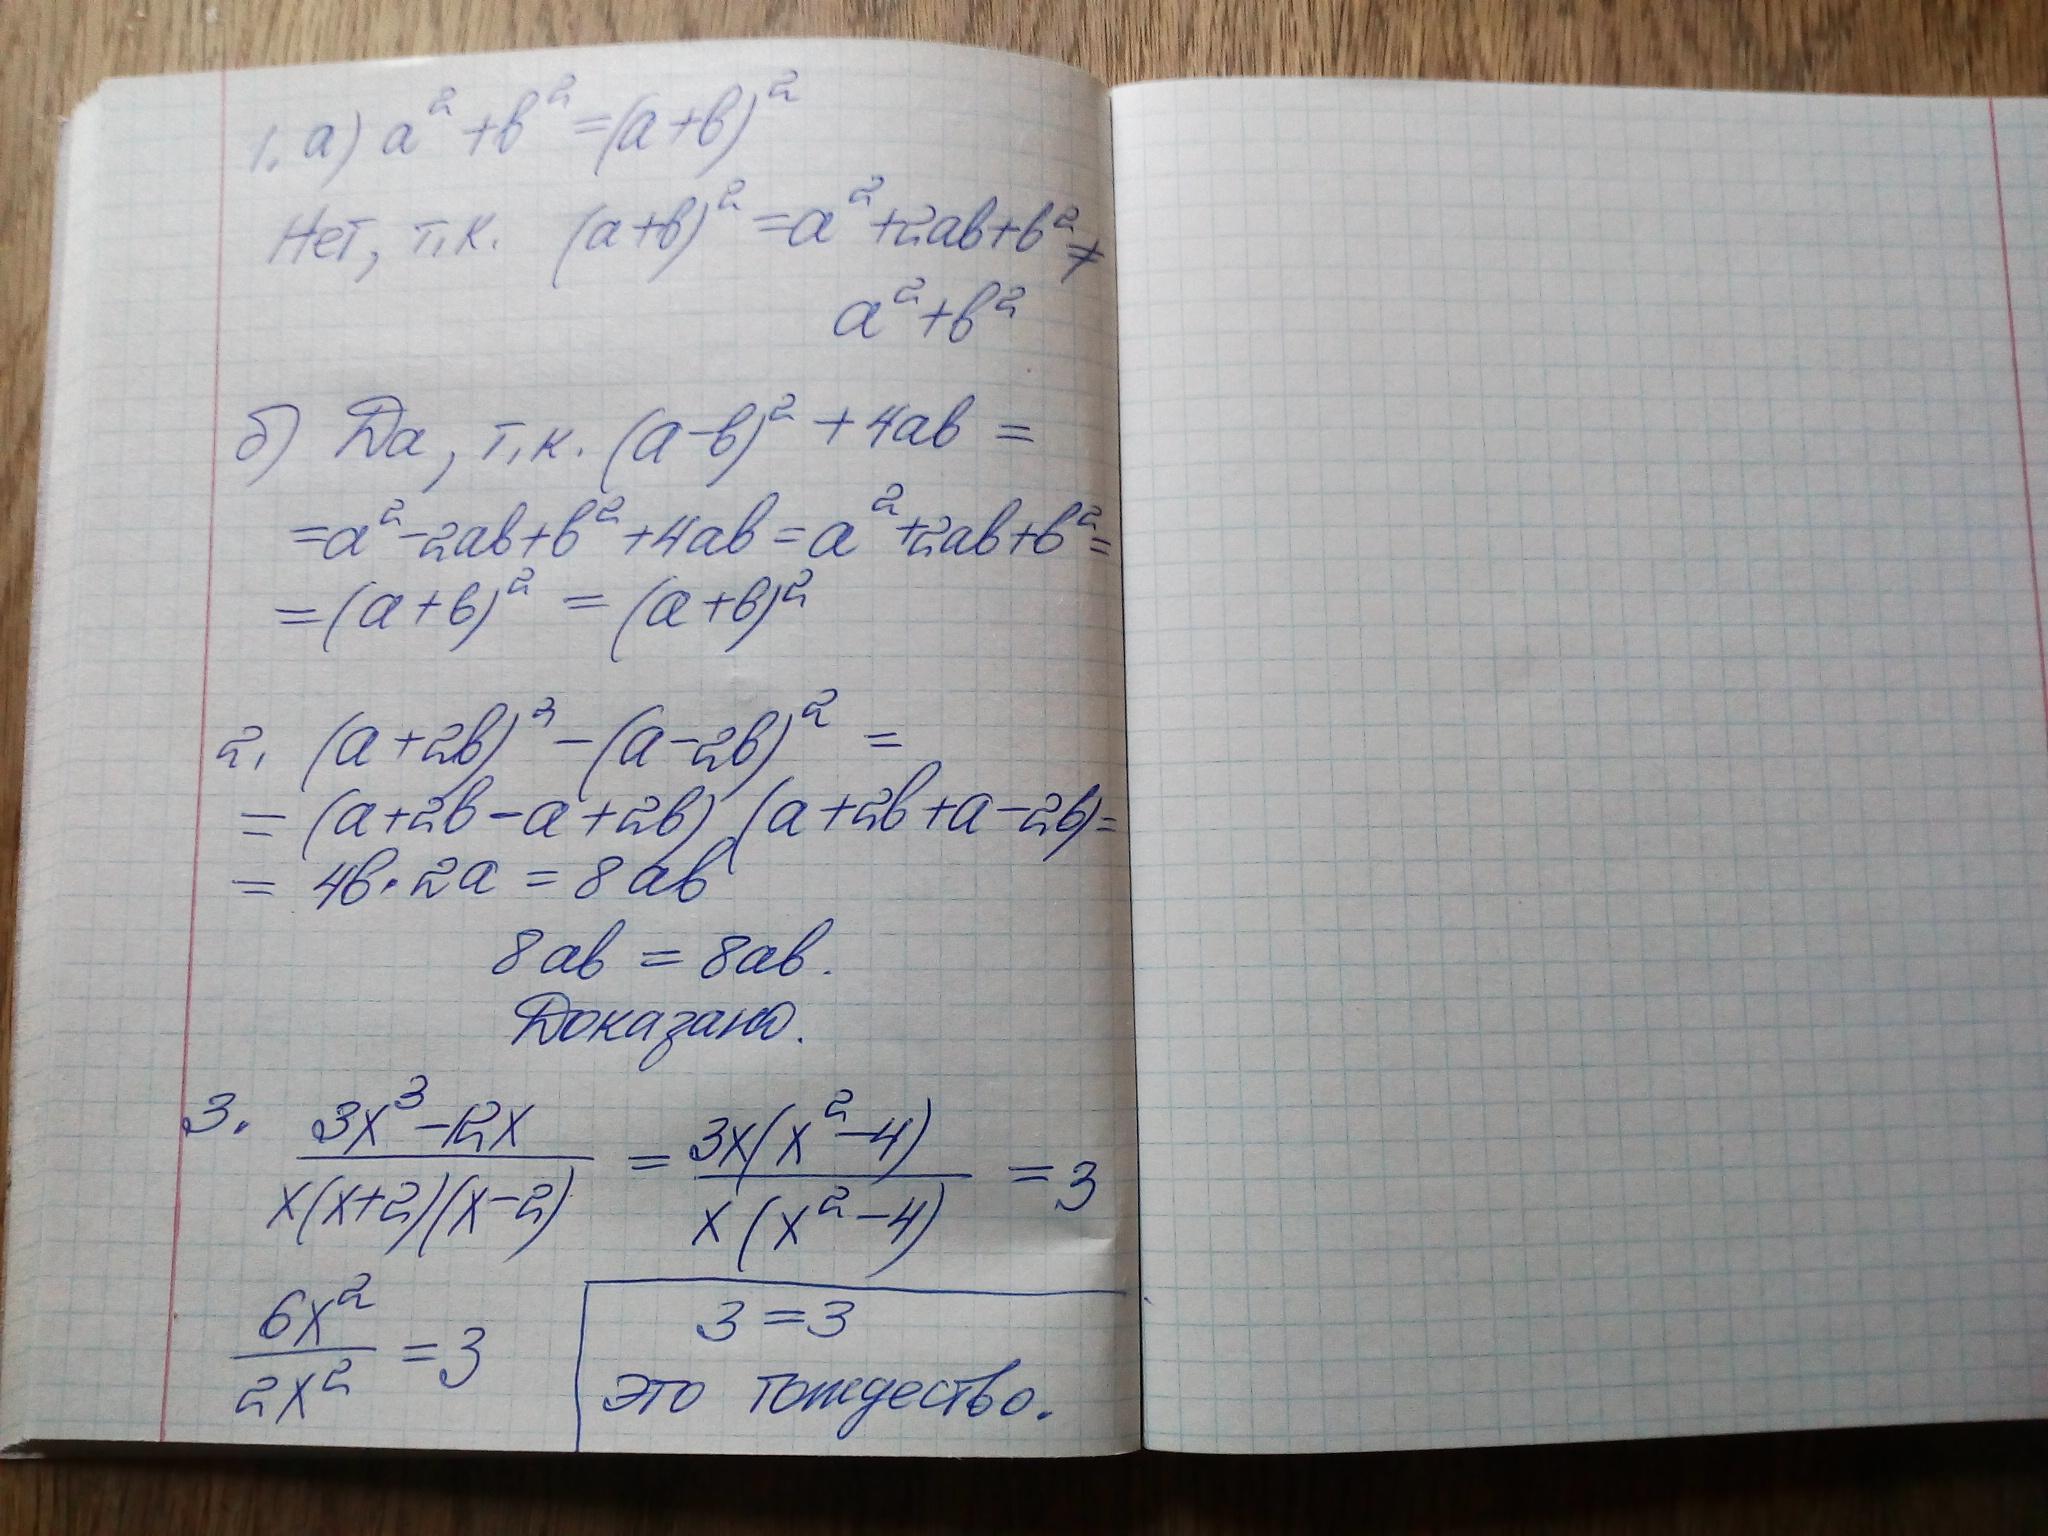 1. а) a² + b² = (a + b)²
Нет, т.к. (a + b)² = a² + 2ab + b² ≠
a² + b²
б) Да, т.к. (a - b)² + 4ab =
= a² - 2ab + b² + 4ab = a² + 2ab + b² =
= (a + b)² = (a + b)²
2. (a + 2b)² - (a - 2b)² =
= (a + 2b - a + 2b) (a + 2b + a - 2b) =
= 4b · 2a = 8ab
8ab = 8ab.
Доказано.
3. (3x³ - 12x) / (x(x + 2)(x - 2)) = (3x(x² - 4)) / (x(x² - 4)) = 3
6x² / 2x² = 3
3 = 3
это тождество.